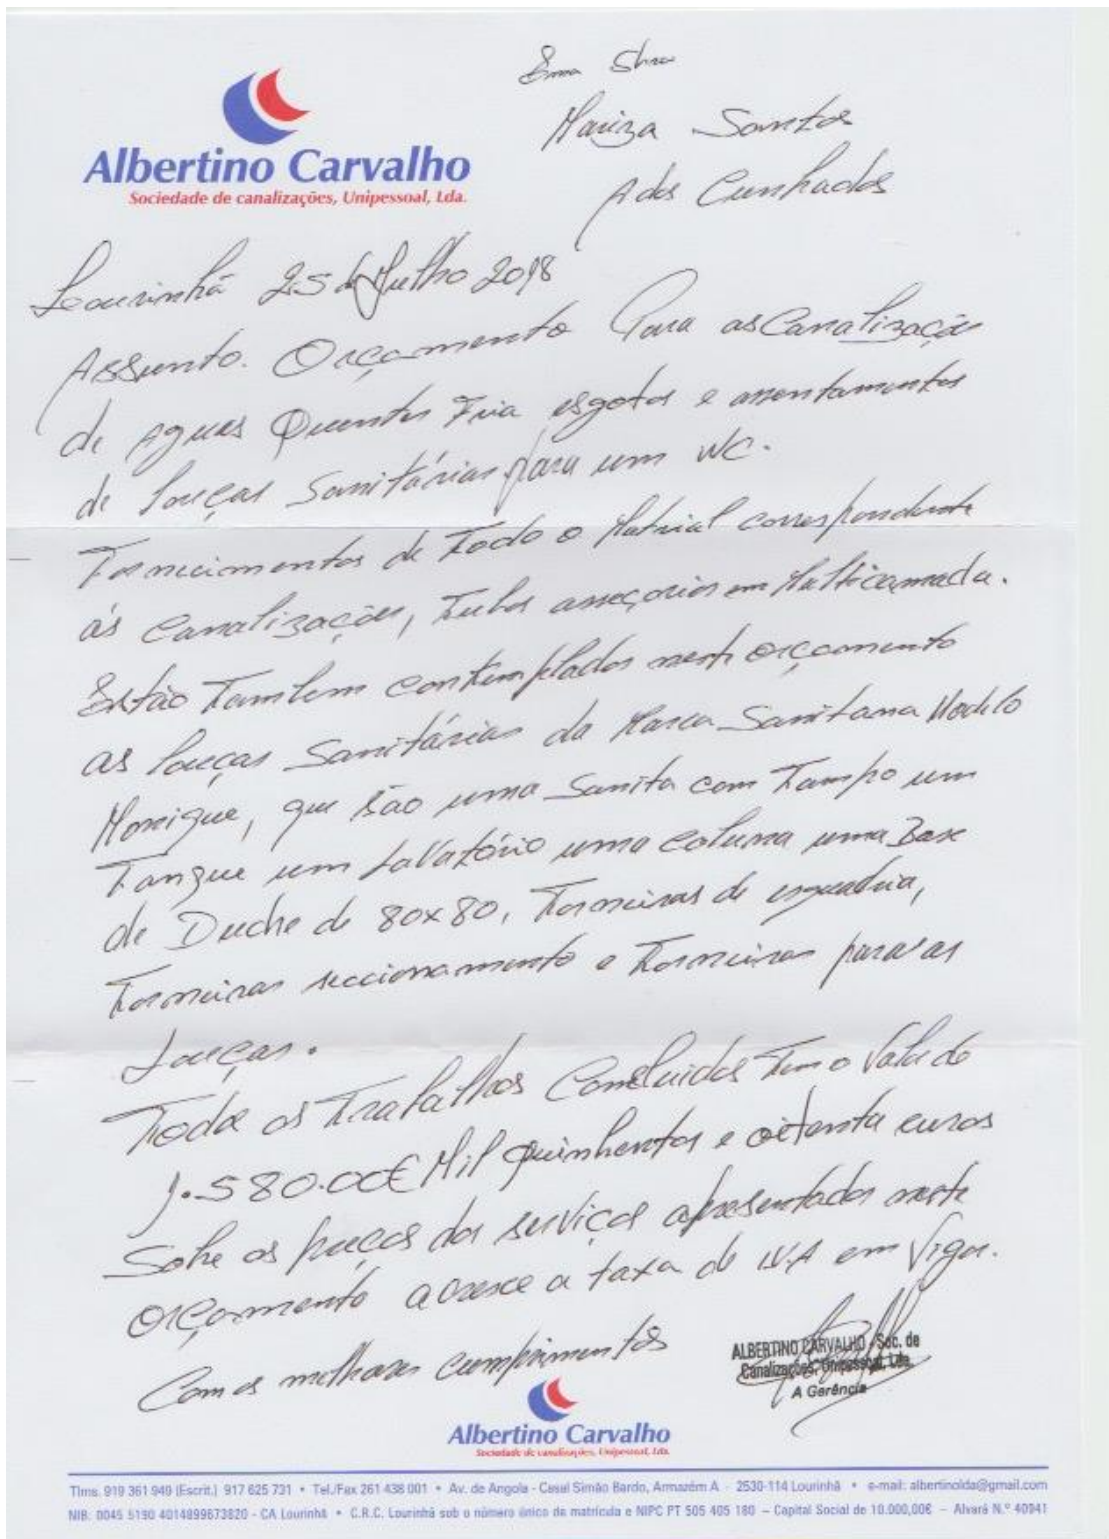 Exma Shra
Mariza Santos
A dos Cunhados
Albertino Carvalho
Sociedade de canalizações, Unipessoal, Lda.
Lourinhã 25 de Julho 2018
Assunto. Orçamento Para as Canalização
de Aguas Quentes Fria esgotos e assentamentos
de louças Sanitárias para um WC.
Fornecimentos de Todo o Material correspondente
ás Canalização, Tubos asseçorios em Multicamada.
Estão Tambem contemplados neste orçamento
as louças Sanitárias da Marca Sanitana Modelo
Monique, que são uma Sanita com Tampo um
Tanque um Lavatório uma coluna uma Base
de Duche de 80x80, Torneiras de esquadria,
Torneiras seccionamento e Torneiras para as
Louças.
Todos os Trabalhos Concluidos Tem o Valor de
1.580.00€ Mil quinhentos e oitenta euros
Sobe os preços dos serviços apresentados neste
orçamento acresce a taxa de IVA em Vigor.
Com os melhores cumprimentos
ALBERTINO CARVALHO - Soc. de
Canalizações, Unipessoal, Lda.
A Gerência
Albertino Carvalho
Sociedade de canalizações, Unipessoal, Lda.
Tlms. 919 361 949 (Escrit.) 917 625 731 • Tel./Fax 261 438 001 • Av. de Angola - Casal Simão Bardo, Armazém A - 2530-114 Lourinhã • e-mail: albertinolda@gmail.com
NIB: 0045 5190 4014899673820 - CA Lourinhã • C.R.C. Lourinhã sob o número único de matrícula e NIPC PT 505 405 180 – Capital Social de 10.000,00€ – Alvará N.º 40941